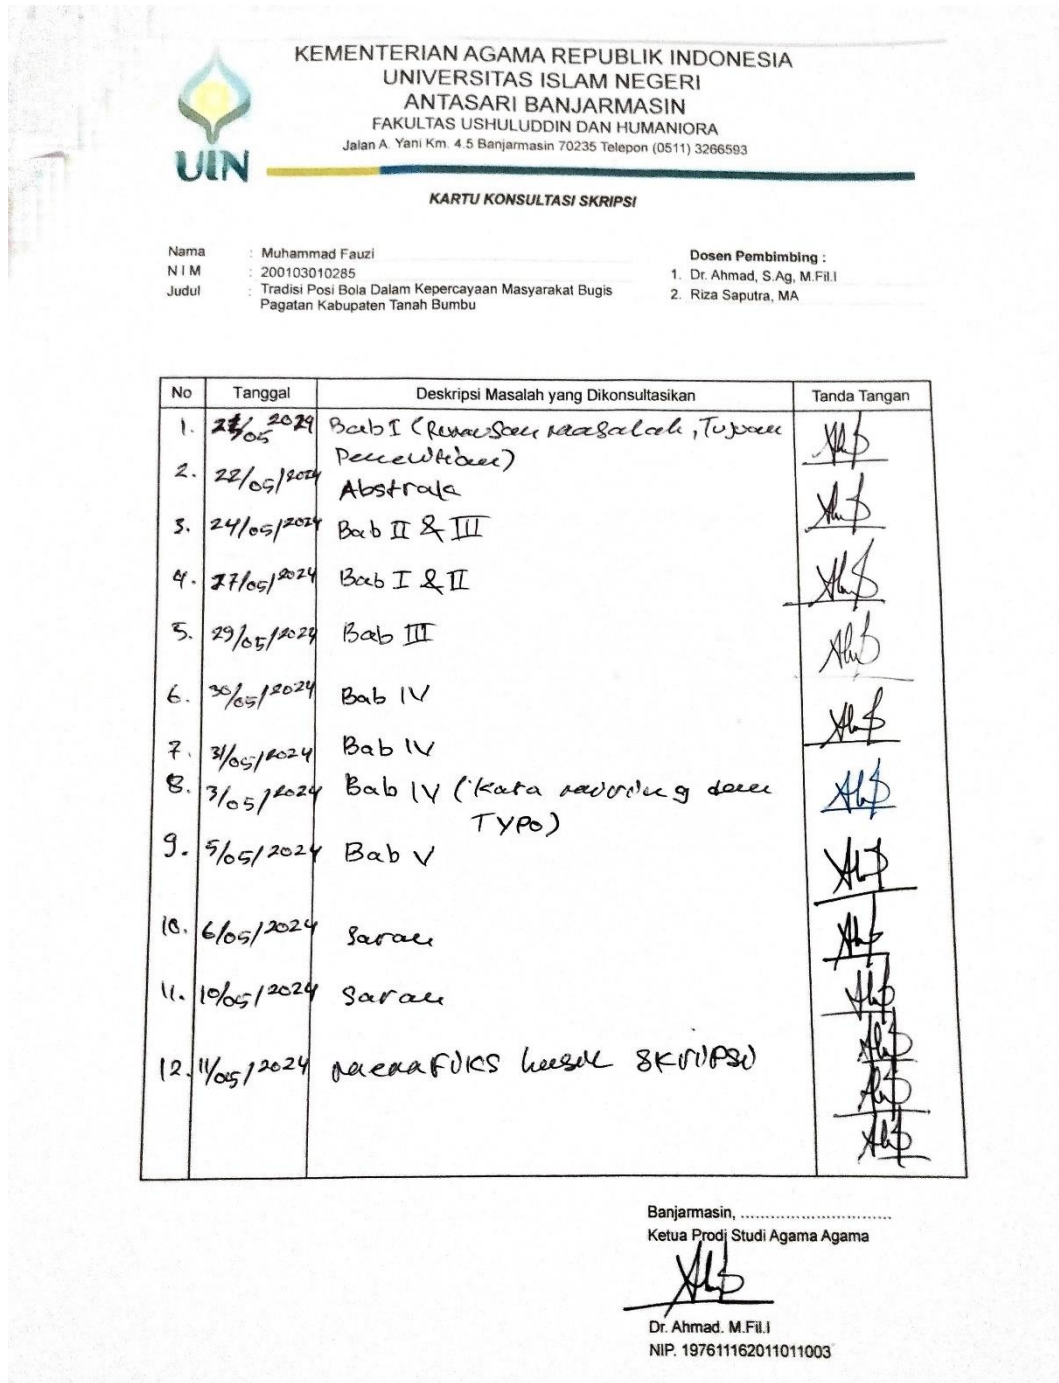 KEMENTERIAN AGAMA REPUBLIK INDONESIA
UNIVERSITAS ISLAM NEGERI
ANTASARI BANJARMASIN
FAKULTAS USHULUDDIN DAN HUMANIORA
Jalan A. Yani Km. 4.5 Banjarmasin 70235 Telepon (0511) 3266593
UIN
KARTU KONSULTASI SKRIPSI
Nama : Muhammad Fauzi
N I M : 200103010285
Judul : Tradisi Posi Bola Dalam Kepercayaan Masyarakat Bugis
Pagatan Kabupaten Tanah Bumbu
Dosen Pembimbing :
1. Dr. Ahmad, S.Ag, M.Fil.I
2. Riza Saputra, MA
No Tanggal Deskripsi Masalah yang Dikonsultasikan Tanda Tangan
1. /05 Bab I (Rumusan masalah, Tujuan
Penelitian)
2. 22/05/2024 Abstrak
3. 24/05/2024 Bab II & III
4. 27/05/2024 Bab I & II
5. 29/05/2024 Bab III
6. 30/05/2024 Bab IV
7. 31/05/2024 Bab IV
8. 3/05/2024 Bab IV (Kata miring dan
TYPO)
9. 5/05/2024 Bab V
10. 6/05/2024 Saran
11. 10/05/2024 Saran
12. 11/05/2024 SKRIPSI
Banjarmasin, ..............................
Ketua Prodi Studi Agama Agama
Dr. Ahmad. M.Fil.I
NIP. 197611162011011003